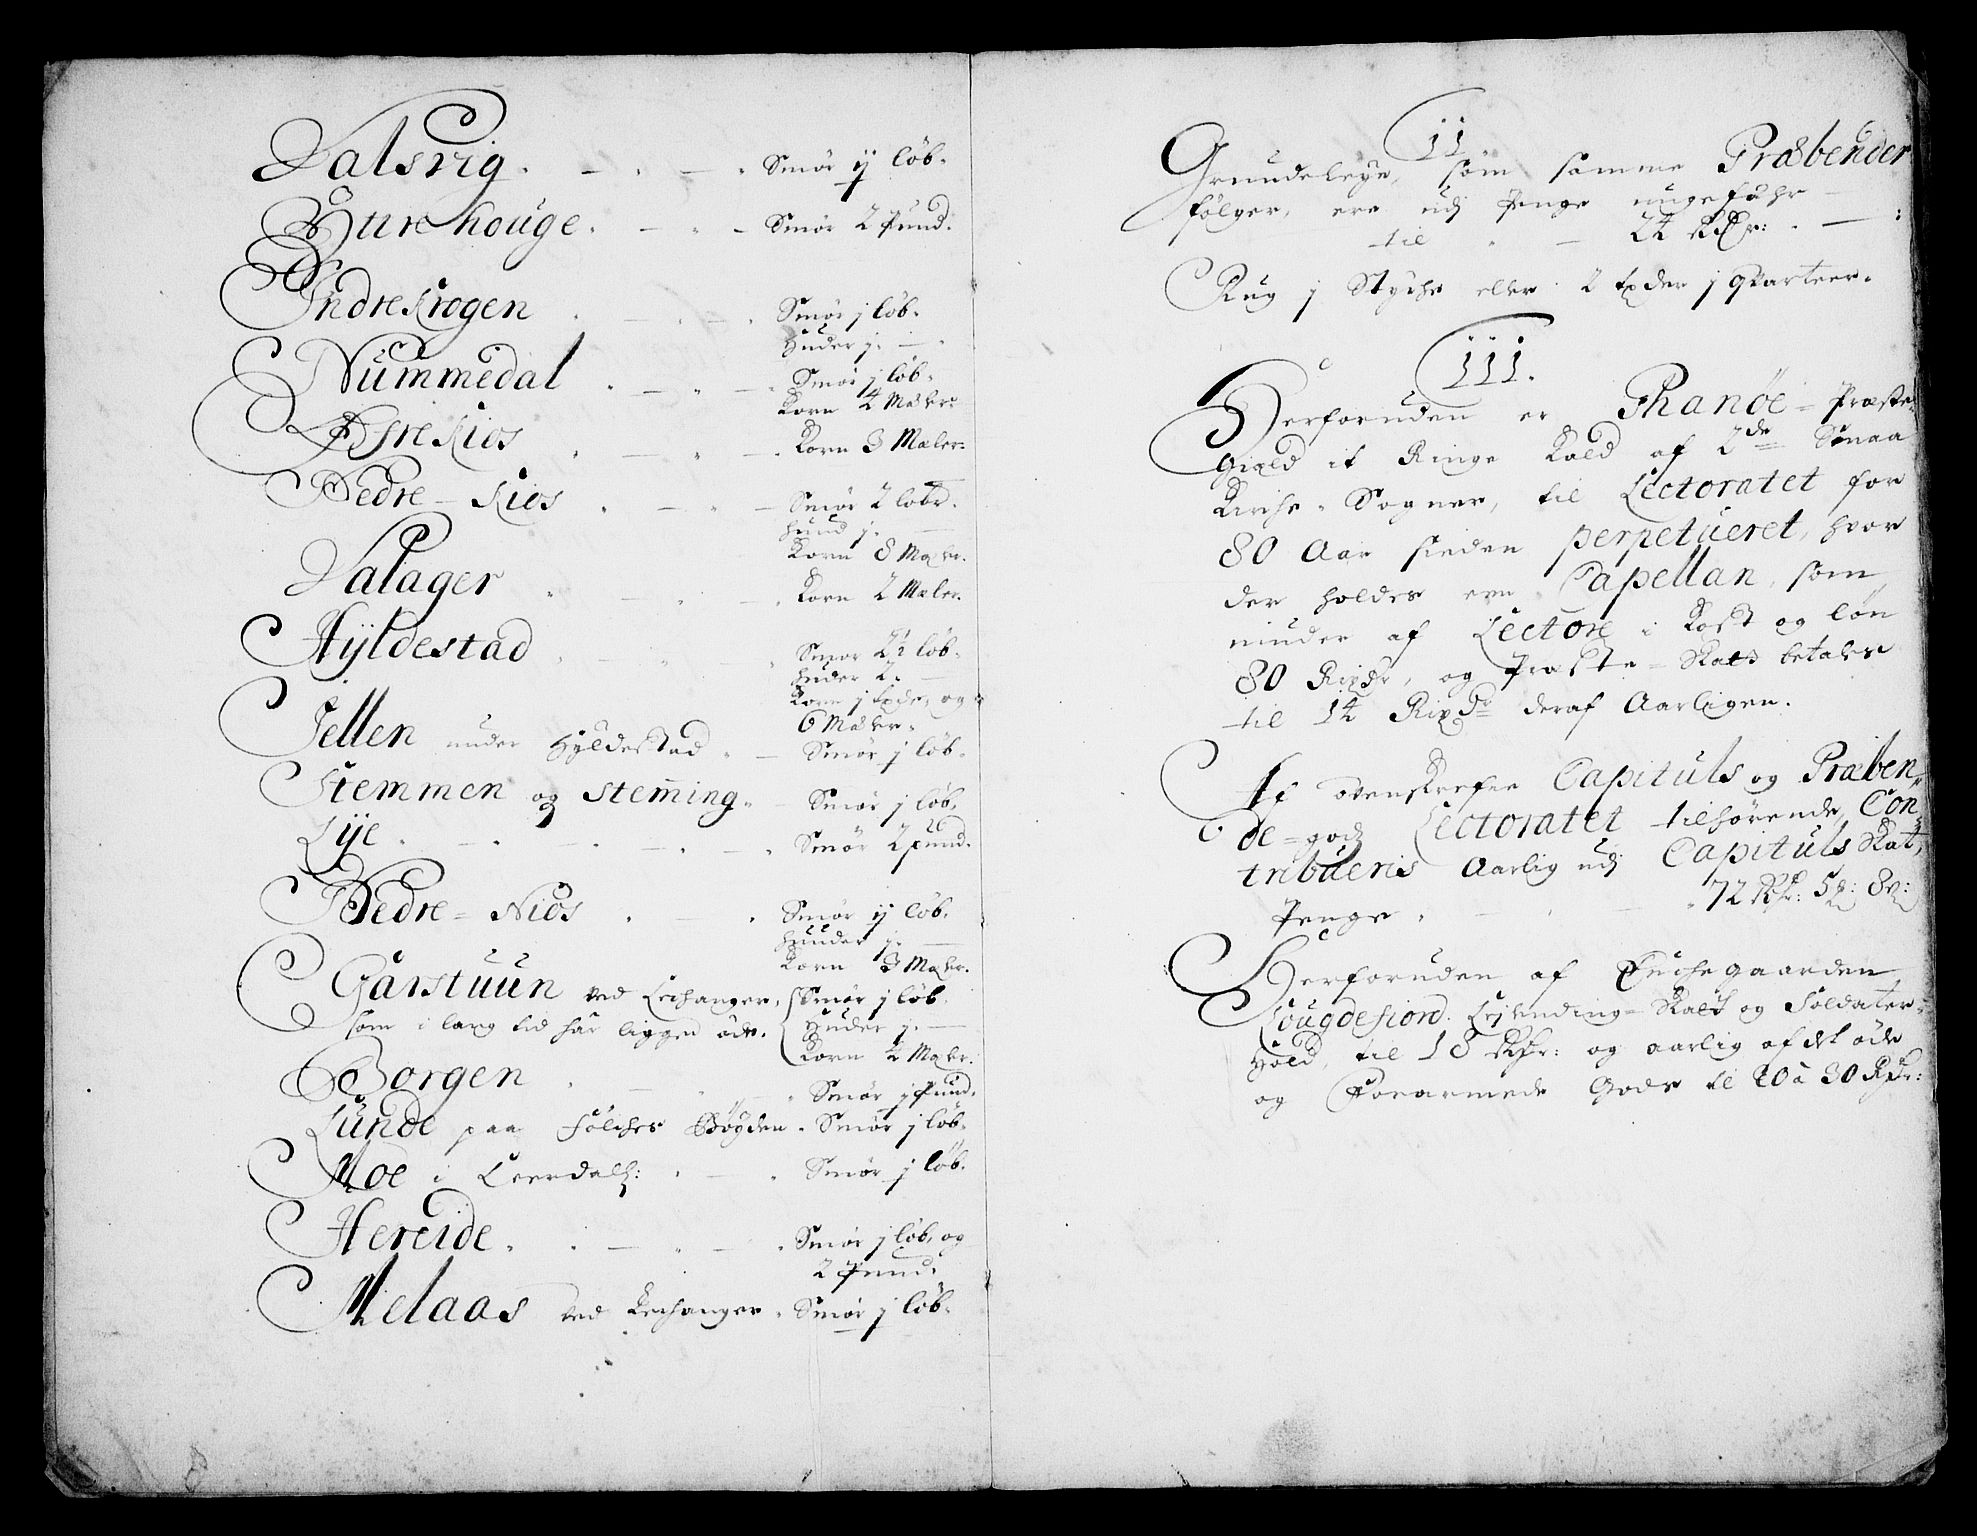 Salsvig. Smör ij löb.
Sture houge. Smör 2 pund.
Indre Krogen Smör j löb.
Huder j.
Nummedal Smör j löb.
Korn 4 Mæler
Øfre Kios Korn 3 Mæler
Nedre-Kios Smör 2 löbr.
Hund j.
Korn 8 Mæler.
Salager Korn 2 Mæler.
Hÿldestad Smör 2½ löb.
Huder 2.
Korn j og
6 Mæler.
Tellen under Hÿldestad Smör j löb.
Stemmen og Steming. Smör j löb.
Lÿe. Smör 2 pund.
Nedre-Nios Smör ij löb.
Huuder j.
Korn 3 Mæler.
Garstuun ved Lechanger, Smör j löb.
som i lang tid har liggen öde. Huder j.
Korn 4 Mæler:
Borgen Smör j Pund.
Lunde paa Sölches Bögden. Smör j löb.
Moe i Leerdall: Smör j löb.
Hereide. Smör j löb, og
2 Pund.
Melaas ved Lechanger. Smör j löb.
II
Grundeleye, som samme Præbender
fölger, ere udj Penge ungefähr
til 24 Rdr:
Rug j Stÿche eller 2 j Qvarteer.
III.
Herforuden er Phanöe-Præste-
Gield it Ringe Kald af 2de Smaa
Kirche-Sogner, til Lectoratet for
80 Aar sieden perpetueret, hvor
der holdes een Capellan, som
niuder af Lectore i Kost og lön
80 Rixdr, og Præste-Skatt betales
til 14 Rixdr deraf Aarligen.
Af ovenskrefne Capituls og Præben-
de-godz Lectoratet tilhörende, Con-
tribueris Aarlig udj Capituls Skat,
Penge. 72 Rdr: 5 : 8 :
Herforuden af Enchegaarden
Sougdefiord. Leylending-Skatt og Soldater-
Hold, til 18 Rdr: og aarlig af det öde
og Forarmede Gods til 20 à 30 Rdr: